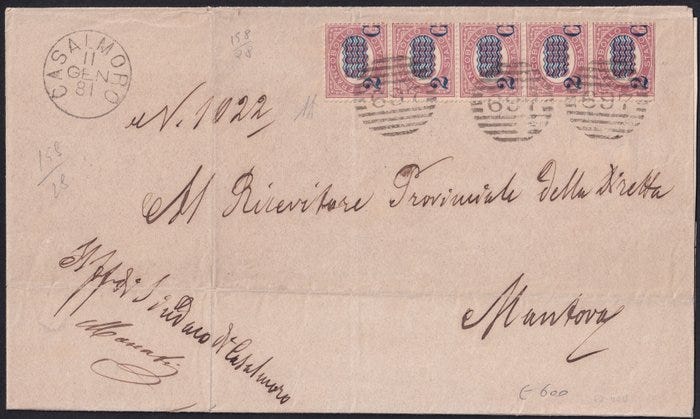 CASALMORO
11
GEN
81
158
28
2 C 2 C 2 C 2 C 2 C
697 697 697
N. 1022
158
28
Al Ricevitore Provinciale della Diretta
Mantova
Il ff. di Sindaco di Casalmoro
€ 600